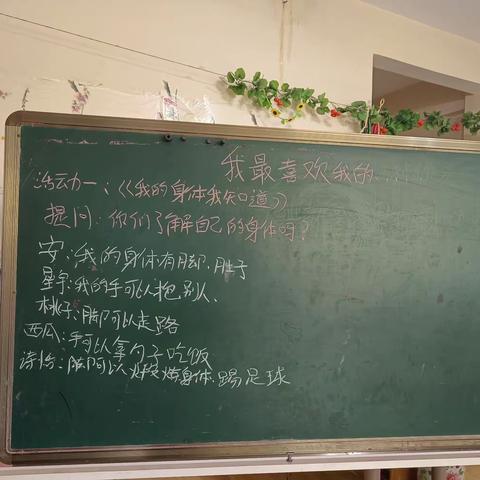 我最喜欢我的......
活动一：《我的身体我知道》
提问：你们了解自己的身体吗？
安：我的身体有脚、肚子
星宇：我的手可以抱别人、
桃子：脚可以走路
西瓜：手可以拿勺子吃饭
诗怡：脚可以 身体、踢足球